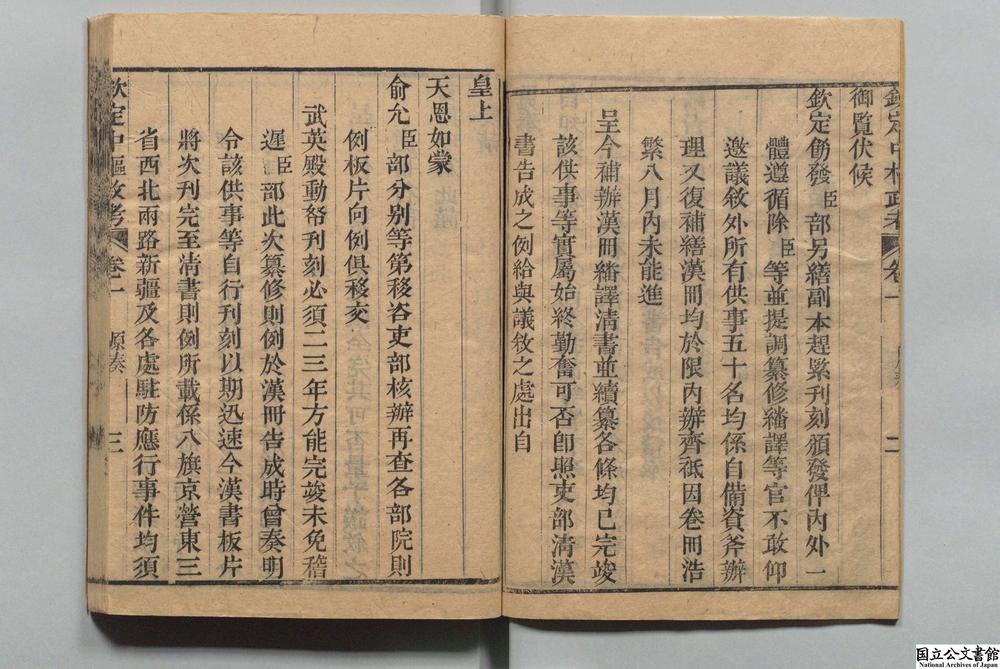 欽定中樞政考 卷一 原奏 二
御覽伏候
欽定飭發臣部另繕副本趕緊刊刻頒發俾內外一
體遵循除臣等並提調纂修繙譯等官不敢仰
邀議敘外所有供事五十名均係自備資斧辦
理又復補繕漢冊均於限內辦齊祗因卷冊浩
繁八月內未能進
呈今補辦漢冊繙譯清書並續纂各條均已完竣
該供事等實屬始終勤奮可否卽照吏部清漢
書告成之例給與議敘之處出自
皇上
天恩如蒙
俞允臣部分別等第移咨吏部核辦再查各部院則
例板片向例俱移交
武英殿動帑刊刻必須二三年方能完竣未免稽
遲臣部此次纂修則例於漢冊告成時曾奏明
令該供事等自行刊刻以期迅速今漢書板片
將次刊完至清書則例所載係八旗京營東三
省西北兩路新疆及各處駐防應行事件均須
欽定中樞政考 卷一 原奏 三
国立公文書館
National Archives of Japan